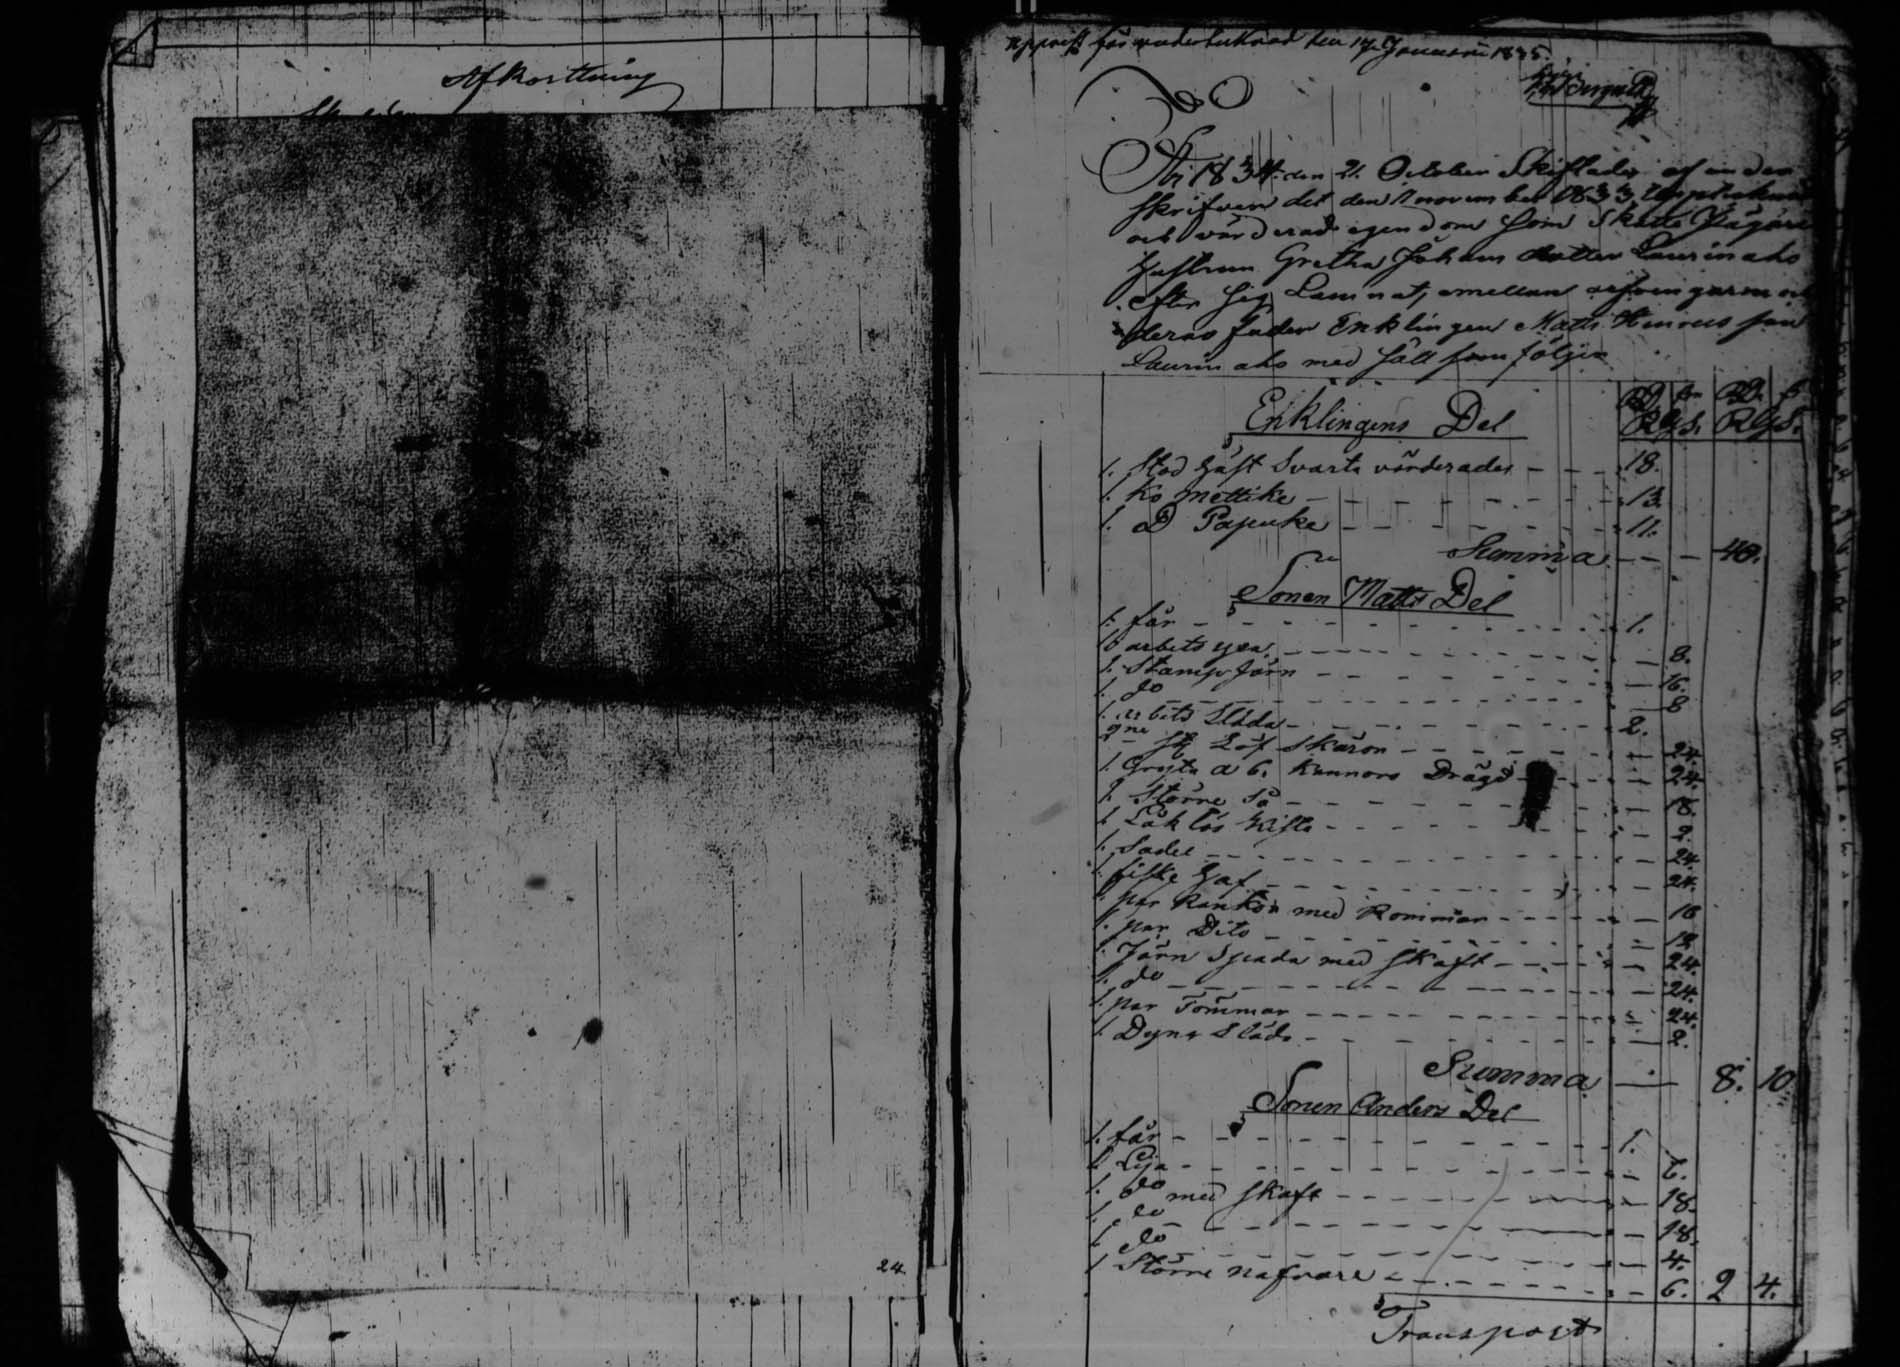 Afkortning
24.
den 17 Januarii 1835.
År 1834. den 21. October Skiftades af under
skrifven det den 1 november 1833 upptekned
och värderade egendom som Skatte
Hustrun Gretha Johans dotter Laurinaho
efter sig Lämnat, emellan arfvingarne och
deras fader Enklingen Matts Henricsson
Laurinaho med sätt som följer
Rd. Rd.
Enklingens Del RGs. RGs.
1. Stod häst Svarta värderades - - - 18.
1. Ko Mettike - - - 13.
1. D Papuke - - - 11.
Summa - - - 40.
Sonen Matts Del
1. får - - - 1.
1 arbets yxa - - - 8.
1. Stamp Järn - - - 16.
1. do - - - 8
1. arbets Släda - - - 2.
Löf skäron - - - 24.
1. Gryta a 6. Kannors Drägt - - - 24.
1. Större Så - - - 18.
1. Låk lös kista - - - 2.
1. Sadel - - - 24.
1. fiske - - - 24.
1. par Rankor med Rommor - - - 16
1. par Dito - - - 12
1. Järn Spada med skaft - - - 24.
1. do - - - 24.
1. par Tömmar - - - 24.
1. Dyng Släda - - - 2.
Summa - - - 8. 10.
Sonen Anders Del
1. får - - - 1.
1 Lija - - - 6.
1. do med skaft - - - 18.
1. do - - - 18.
1 do - - - 4.
1 Större nafvare - - - 6. 2 4.
Transport